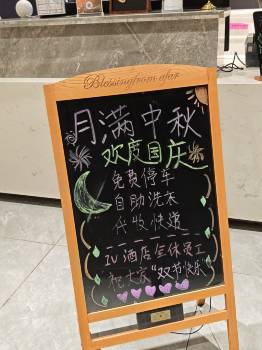 Blessingfrom afar
月满中秋
欢度国庆
免费停车
自助洗衣
代收快递
IU酒店全体员工
祝大家"双节快乐"